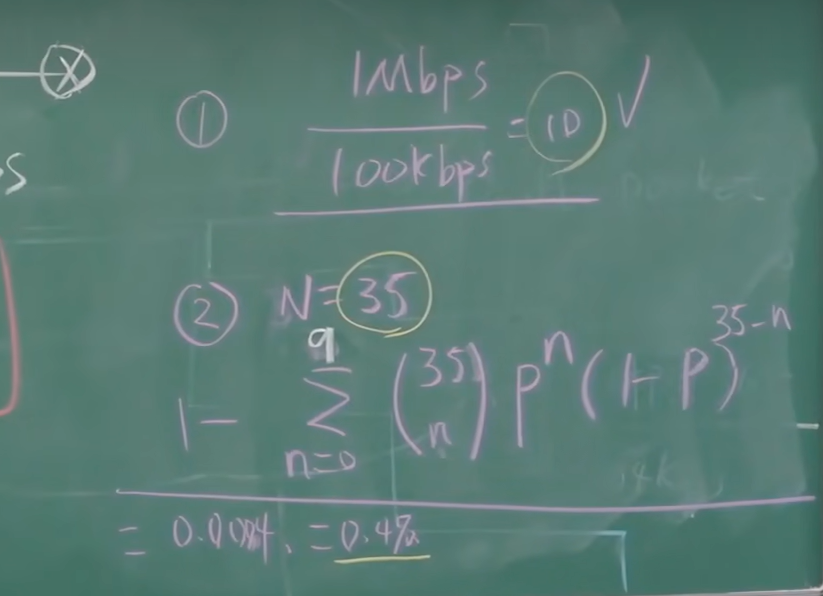 X
s
① 1Mbps / 100kbps = 10 ✓
② N=35
1- 9 ∑ n=0 (35 n) p^n (1-p)^35-n
= 0.0004. = 0.4%